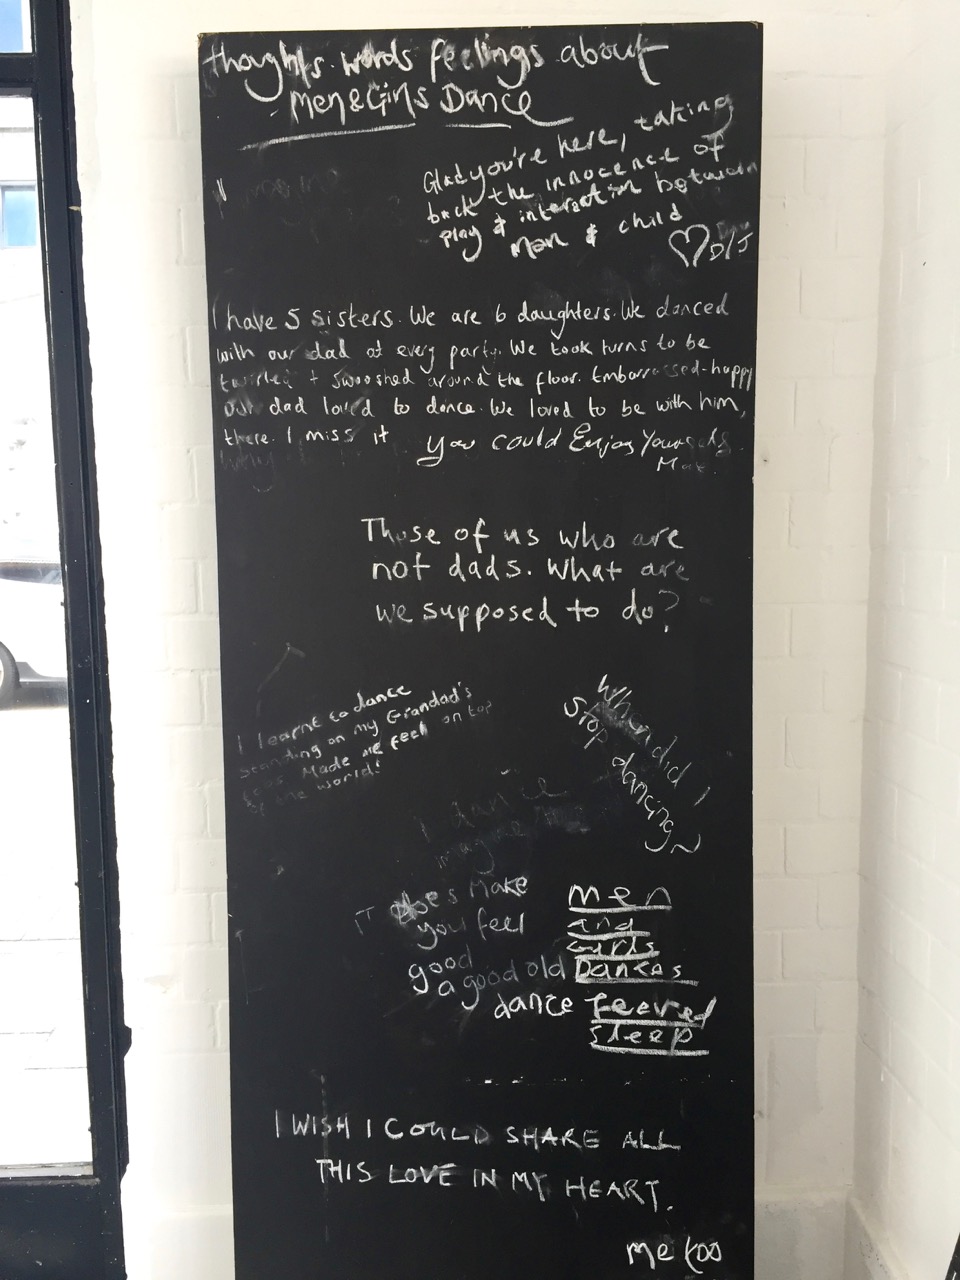 thoughts. words feelings about
Men & Girls Dance
Glad you're here, taking
back the innocence of
play & interaction between
Man & child
D/J
I have 5 sisters. We are 6 daughters. We danced
with our dad at every party. We took turns to be
twirled + swooshed around the floor. Embarrassed-happy
our dad loved to dance. We loved to be with him,
there. I miss it
you could Enjoy
Those of us who are
not dads. What are
we supposed to do?
I learnt to dance
standing on my Grandad's
Made me feel on top
of the world!
When did I
stop dancing
I dance
IT does make
you feel
good
a good old
dance
men
and
Girls
Dances
sleep
I WISH I COULD SHARE ALL
THIS LOVE IN MY HEART.
me too